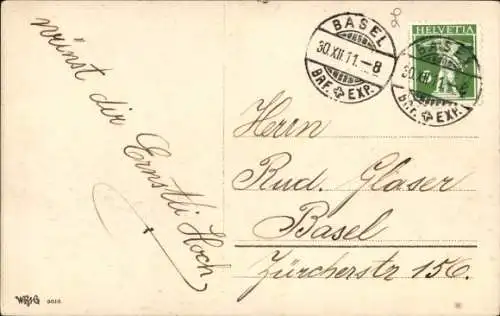 wünst dir Ernstli Hoch
26
BASEL
30.XII.11.-8
BRF. EXP.
HELVETIA
BASEL
30.XII.11.-8
BRF. EXP.
Herrn
Rud. Glaser
Basel
Zürcherstr 156.
WR&G